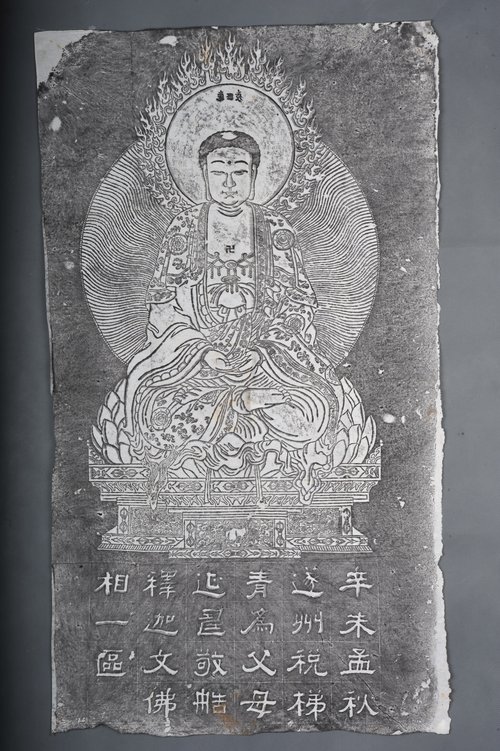 卍
辛未孟秋
遂州税梯
青為父母
延敬艁
釋迦文佛
相一區